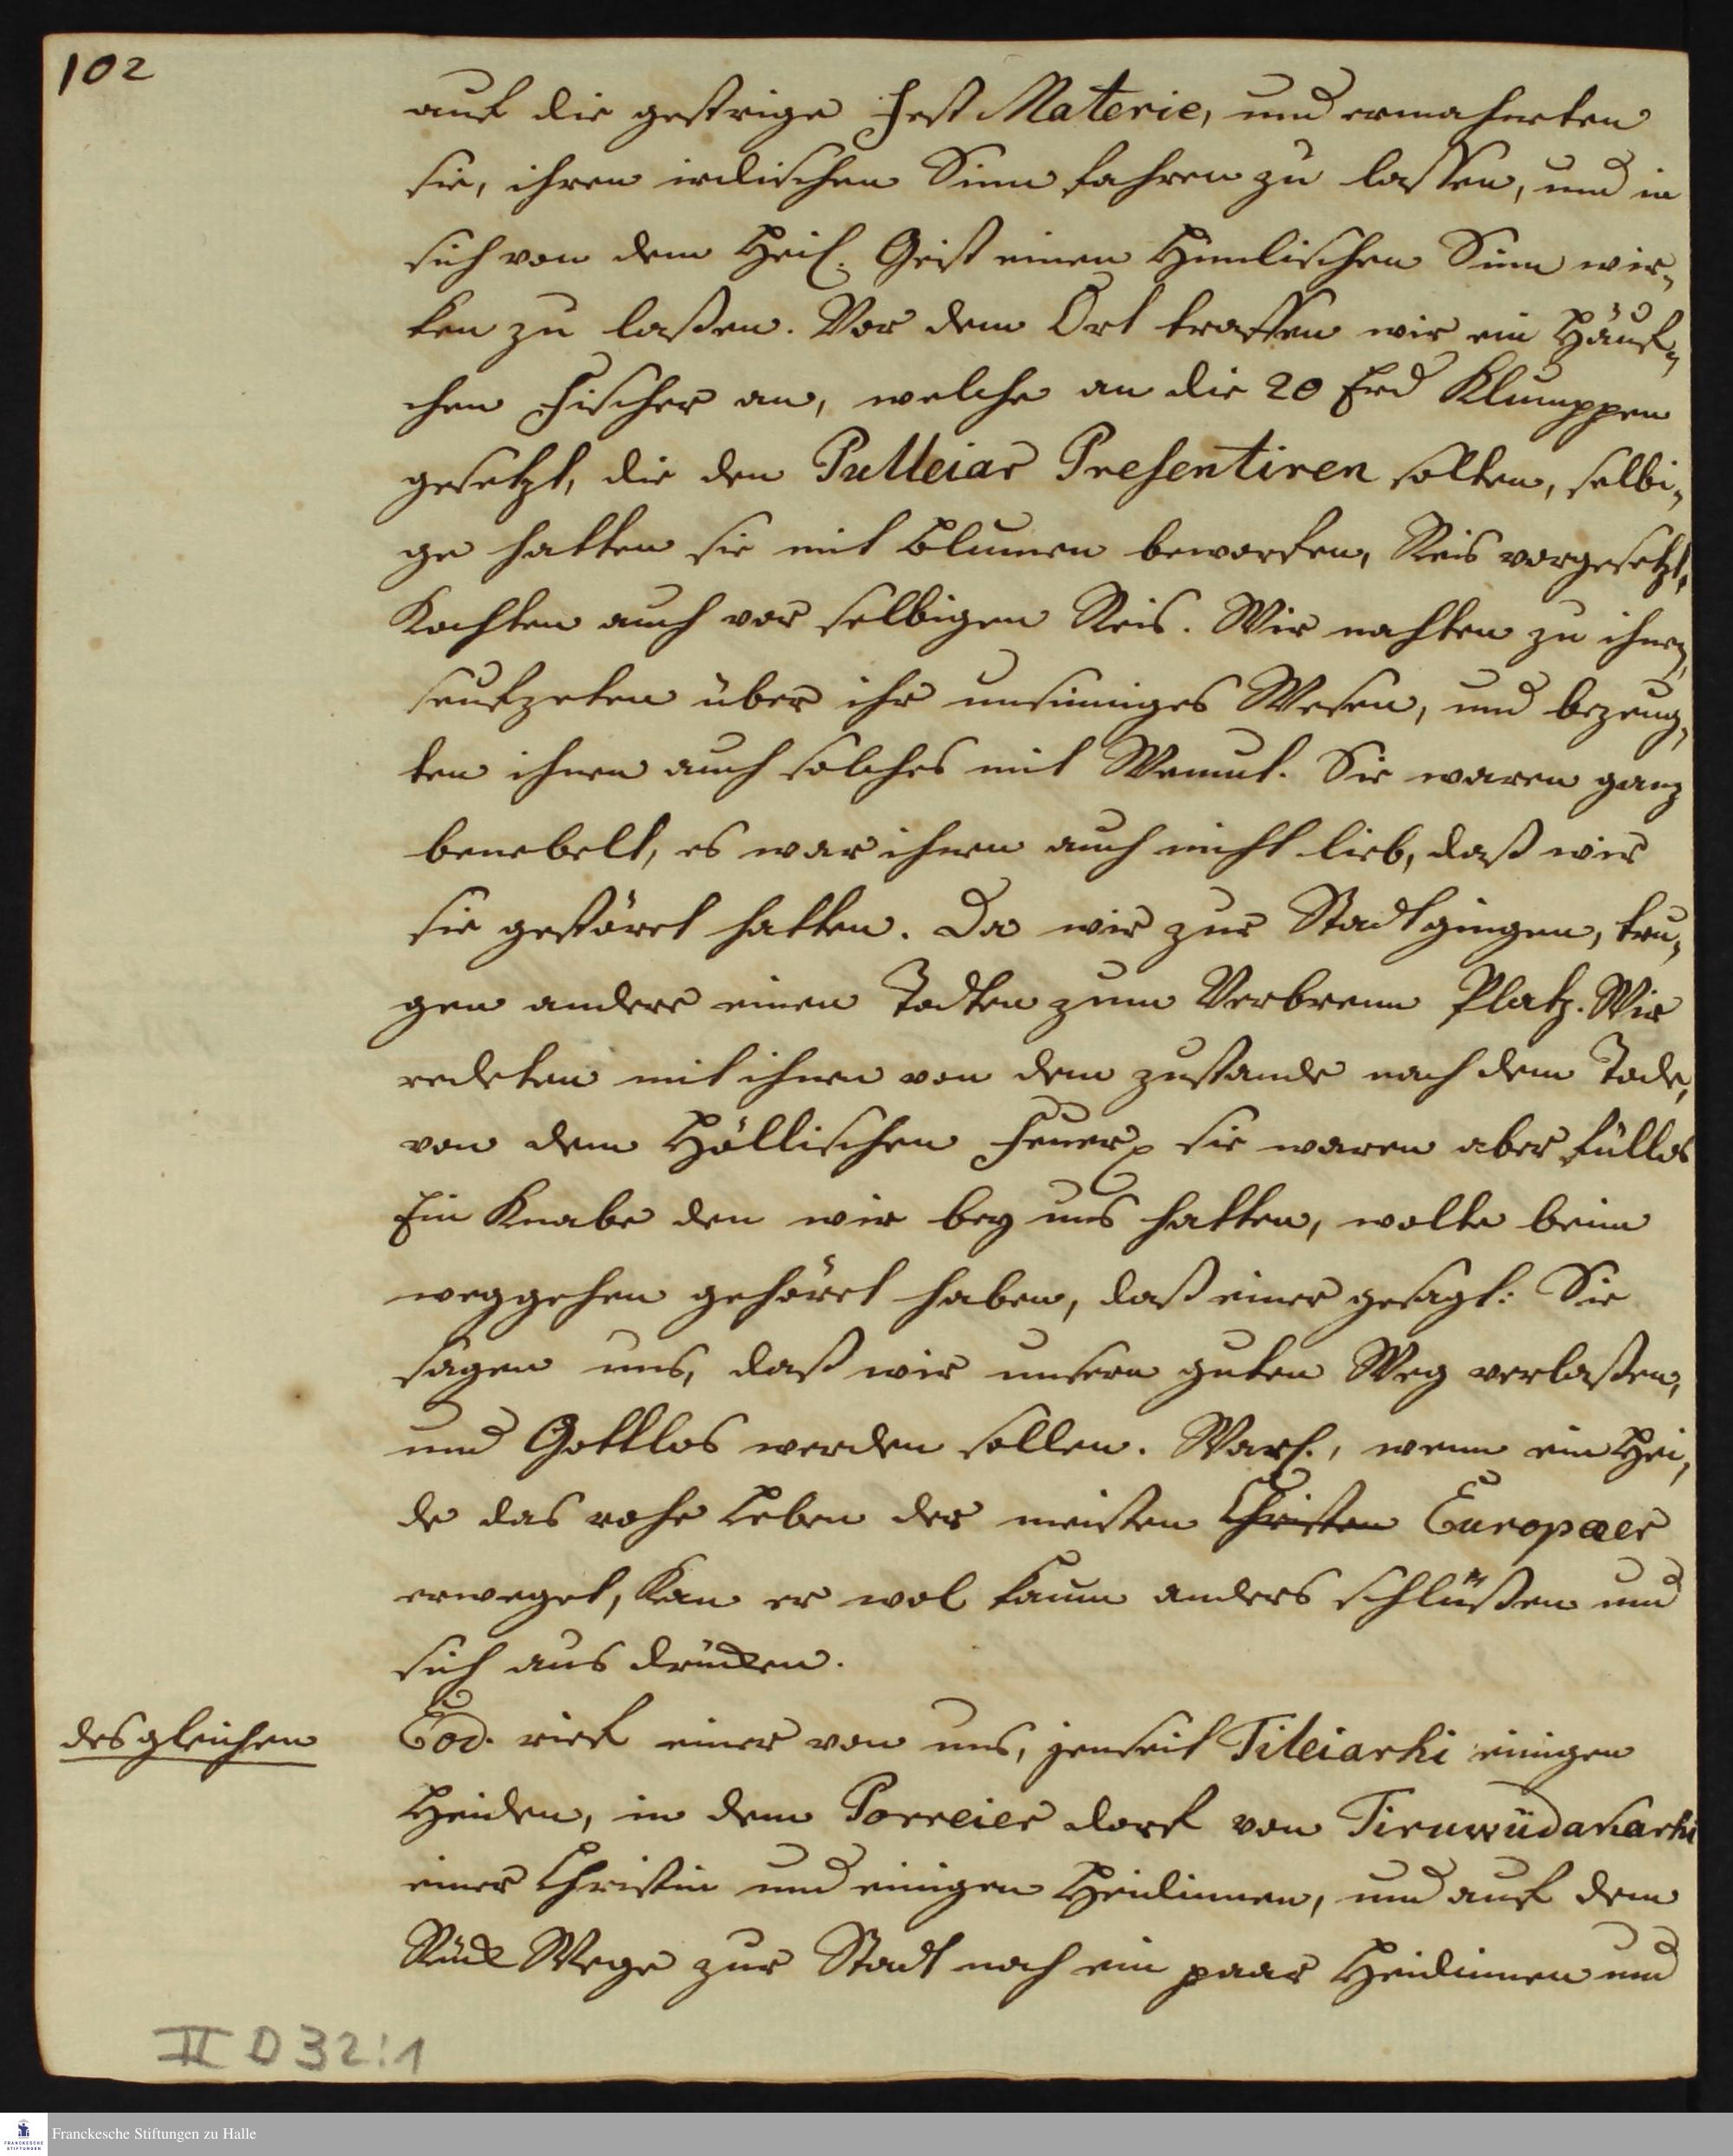 102
auf die gestrige Fest Materie, und ermahneten
sie, ihren irdischen Sinn fahren zu lassen, und in
sich von dem Heil. Geist einen Himlischen Sinn wir„
ken zu laßen. Vor dem Ort traffen wir ein Häuf„
chen Fischer an, welche an die 20 Erd Klumppen
gesetzt, die den Pulleiar Presentiren solten, selbi„
ge hatten sie mit Blumen beworfen, Reis vorgesetzt,
Kochten auch vor selbigen Reis. Wir nahten zu ihnen,
seufzeten über ihr unsinniges Wesen, und bezeug„
ten ihnen auch solches mit Wemut. Sie waren ganz
benebelt, es war ihnen auch nicht lieb, daß wir
sie gestöret hatten. Da wir zur Stadt gingen, tru„
gen andere einen Todten zum Verbrenn Platz. Wir
redeten mit ihnen von dem zustande nach dem Tode,
von dem Höllischen Feuer, sie waren aber füllos
Ein Knabe den wir bey uns hatten, wolte beim
weggehen gehöret haben, daß einer gesagt: Sie
sagen uns, daß wir unsern guten Weg verlaßen,
und Gottlos werden sollen. Warh., wenn ein Hei„
de das rohe Leben der meisten Christen Europaeer
erweget, Kan er wol kaum anders schlüßen und
sich aus drücken.
desgleichen
Eod. rief einer von uns, jenseit Tileiarhi einigen
Heiden, in dem Porreier dorf von Tiruwüdakarhi
einer Christin und einigen Heidinnen, und auf dem
Rück Wege zur Stadt noch ein paar Heidinnen und
II D 32:1
Franckesche Stiftungen zu Halle